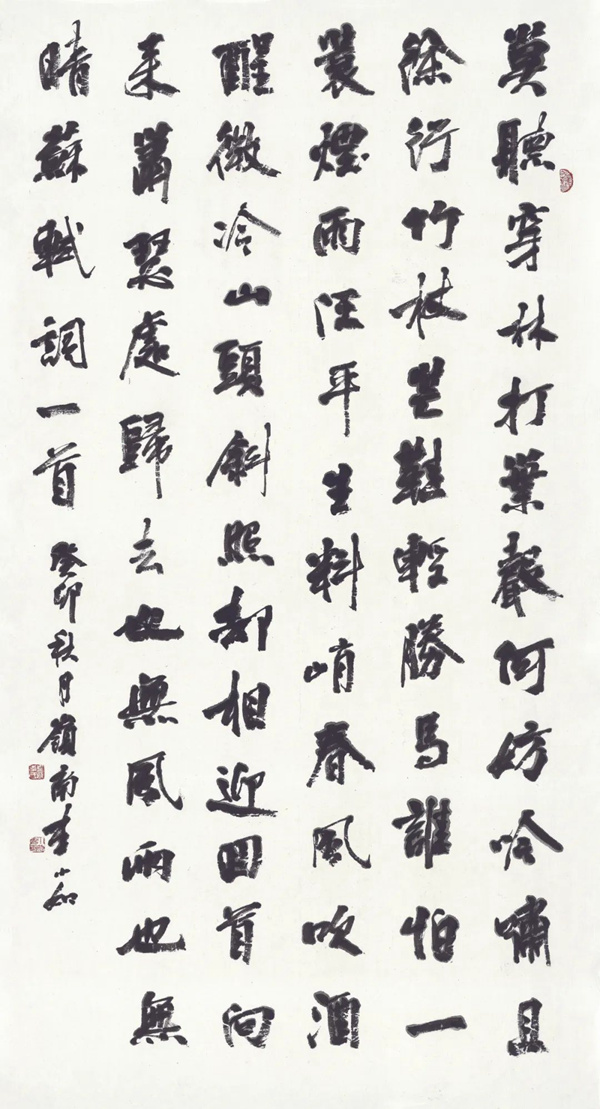 莫聽穿林打葉聲何妨吟嘯且
徐行竹杖芒鞋輕勝馬誰怕一
蓑煙雨任平生料峭春風吹酒
醒微冷山頭斜照却相迎回首向
来蕭瑟處歸去也無風雨也無
晴蘇軾詞一首 癸卯秋月嶺南李小如